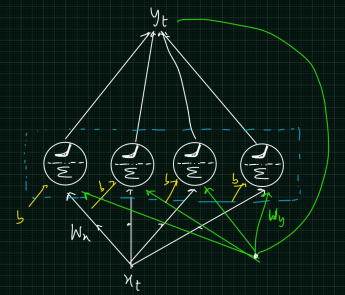 yt
Σ Σ Σ Σ
b b b b
Wx Wy
xt